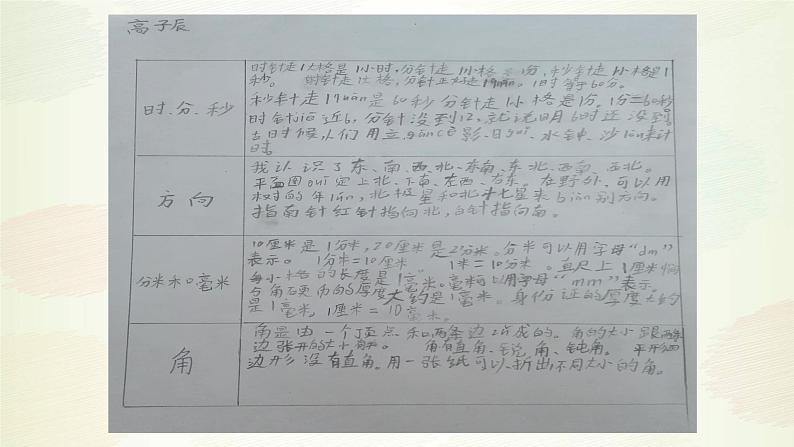 高子辰
时.分.秒
时针走1大格是1小时,分针走1小格是1分,秒针走1小格是1
秒。 时针走1大格,分针正好走1quān。1时等于60分。
秒针走1quān是60秒 分针走1小格是1分。1分=60秒
时针jiē近6,分针没到12,就说明6时还没到
古时候,人们用立gān cè影、日guǐ、水钟、沙lòu来计
时。
方向
我认识了东、南、西、北、东南、东北、西南、西北。
平面图 定上北、下南、左西、右东。在野外,可以用
树的年lún,北极星和北斗七星来biàn别方向。
指南针红针指向北,白针指向南。
分米和毫米
10厘米是1分米,20厘米是2分米。分米可以用字母“dm”
表示。 1分米=10厘米 1米=10分米。直尺上1厘米间
每小格的长度是1毫米。毫米可以用字母“mm”表示。
与角硬币的厚度大约是1毫米。身份证的厚度大约
是1毫米,1厘米=10毫米。
角
角是由一个顶点和两条边组成的。角的大小跟两条
边张开的大小有关。 角有直角、锐角、钝角。 平行四
边形没有直角。用一张纸可以折出不同大小的角。